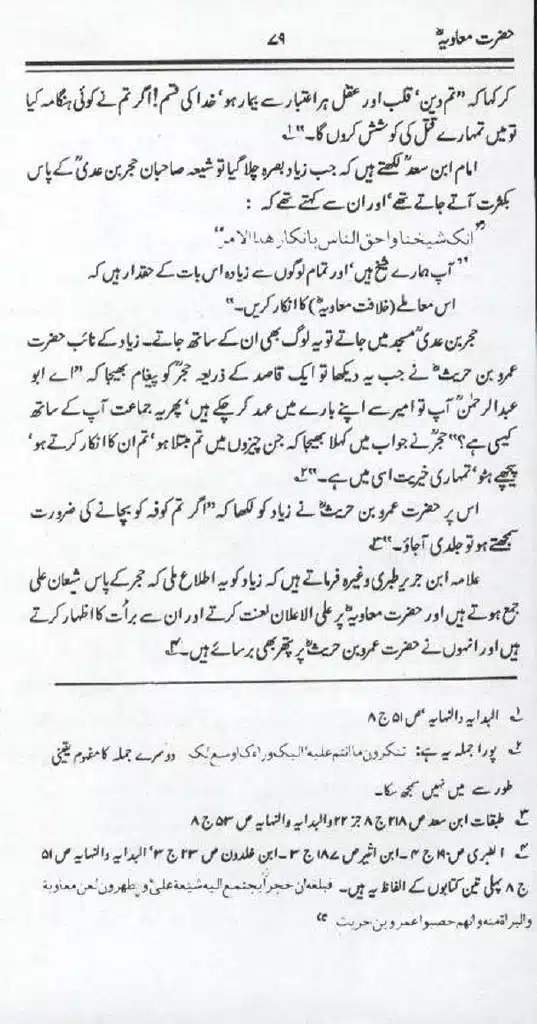 حضرت معاویہؓ ۷۹
کر کہا کہ ”تم دین‘ قلب اور عقل ہر اعتبار سے بیمار ہو‘ خدا کی قسم! اگر تم نے کوئی ہنگامہ کیا
تو میں تمہارے قتل کی کوشش کروں گا۔“۱؎
امام ابن سعدؒ لکھتے ہیں کہ جب زیاد بصرہ چلا گیا تو شیعہ صاحبان حجر بن عدیؓ کے پاس
بکثرت آتے جاتے تھے‘ اور ان سے کہتے تھے کہ :
”انک شیخنا و احق الناس بانکار ھذا الامر“
”آپ ہمارے شیخ ہیں‘ اور تمام لوگوں سے زیادہ اس بات کے حقدار ہیں کہ
اس معاملے (خلافت معاویہؓ) کا انکار کریں۔“
حجر بن عدیؓ مسجد میں جاتے تو یہ لوگ بھی ان کے ساتھ جاتے۔ زیاد کے نائب حضرت
عمرو بن حریثؓ نے جب یہ دیکھا تو ایک قاصد کے ذریعہ حجرؓ کو پیغام بھیجا کہ ”اے ابو
عبدالرحمٰنؓ آپ تو امیر سے اپنے بارے میں عہد کر چکے ہیں‘ پھر یہ جماعت آپ کے ساتھ
کیسی ہے؟“ حجرؓ نے جواب میں کہلا بھیجا کہ جن چیزوں میں تم مبتلا ہو‘ تم ان کا انکار کرتے ہو‘
پیچھے ہٹو‘ تمہاری خیریت اسی میں ہے۔“۲؎
اس پر حضرت عمرو بن حریثؓ نے زیاد کو لکھا کہ ”اگر تم کوفہ کو بچانے کی ضرورت
سمجھتے ہو تو جلدی آجاؤ۔“۳؎
علامہ ابن جریر طبری وغیرہ فرماتے ہیں کہ زیاد کو یہ اطلاع ملی کہ حجر کے پاس شیعان علی
جمع ہوتے ہیں اور حضرت معاویہؓ پر علی الاعلان لعنت کرتے اور ان سے برأت کا اظہار کرتے
ہیں اور انہوں نے حضرت عمرو بن حریثؓ پر پتھر بھی برسائے ہیں۔۴؎
۱؎ البدایہ والنہایہ‘ ص ۵۱ ج ۸
۲؎ پورا جملہ یہ ہے: تنکرون ما انتم علیہ الیک وراءک اوسع لک دوسرے جملہ کا مفہوم یقینی
طور سے میں نہیں سمجھ سکا۔
۳؎ طبقات ابن سعد ص ۲۱۸ ج ۸ جز ۲۲ والبدایہ والنہایہ ص ۵۳ ج ۸
۴؎ الطبری ص ۱۹۰ ج ۴۔ ابن اثیر ص ۱۸۷ ج ۳۔ ابن خلدون ص ۲۳ ج ۳‘ البدایہ والنہایہ ص ۵۱
ج ۸ پہلی تین کتابوں کے الفاظ یہ ہیں۔ فبلغہ ان حجرا یجتمع الیہ شیعة علی و یظھرون لعن معاویة
والبراة منہ وانھم حصبوا عمرو بن حریث